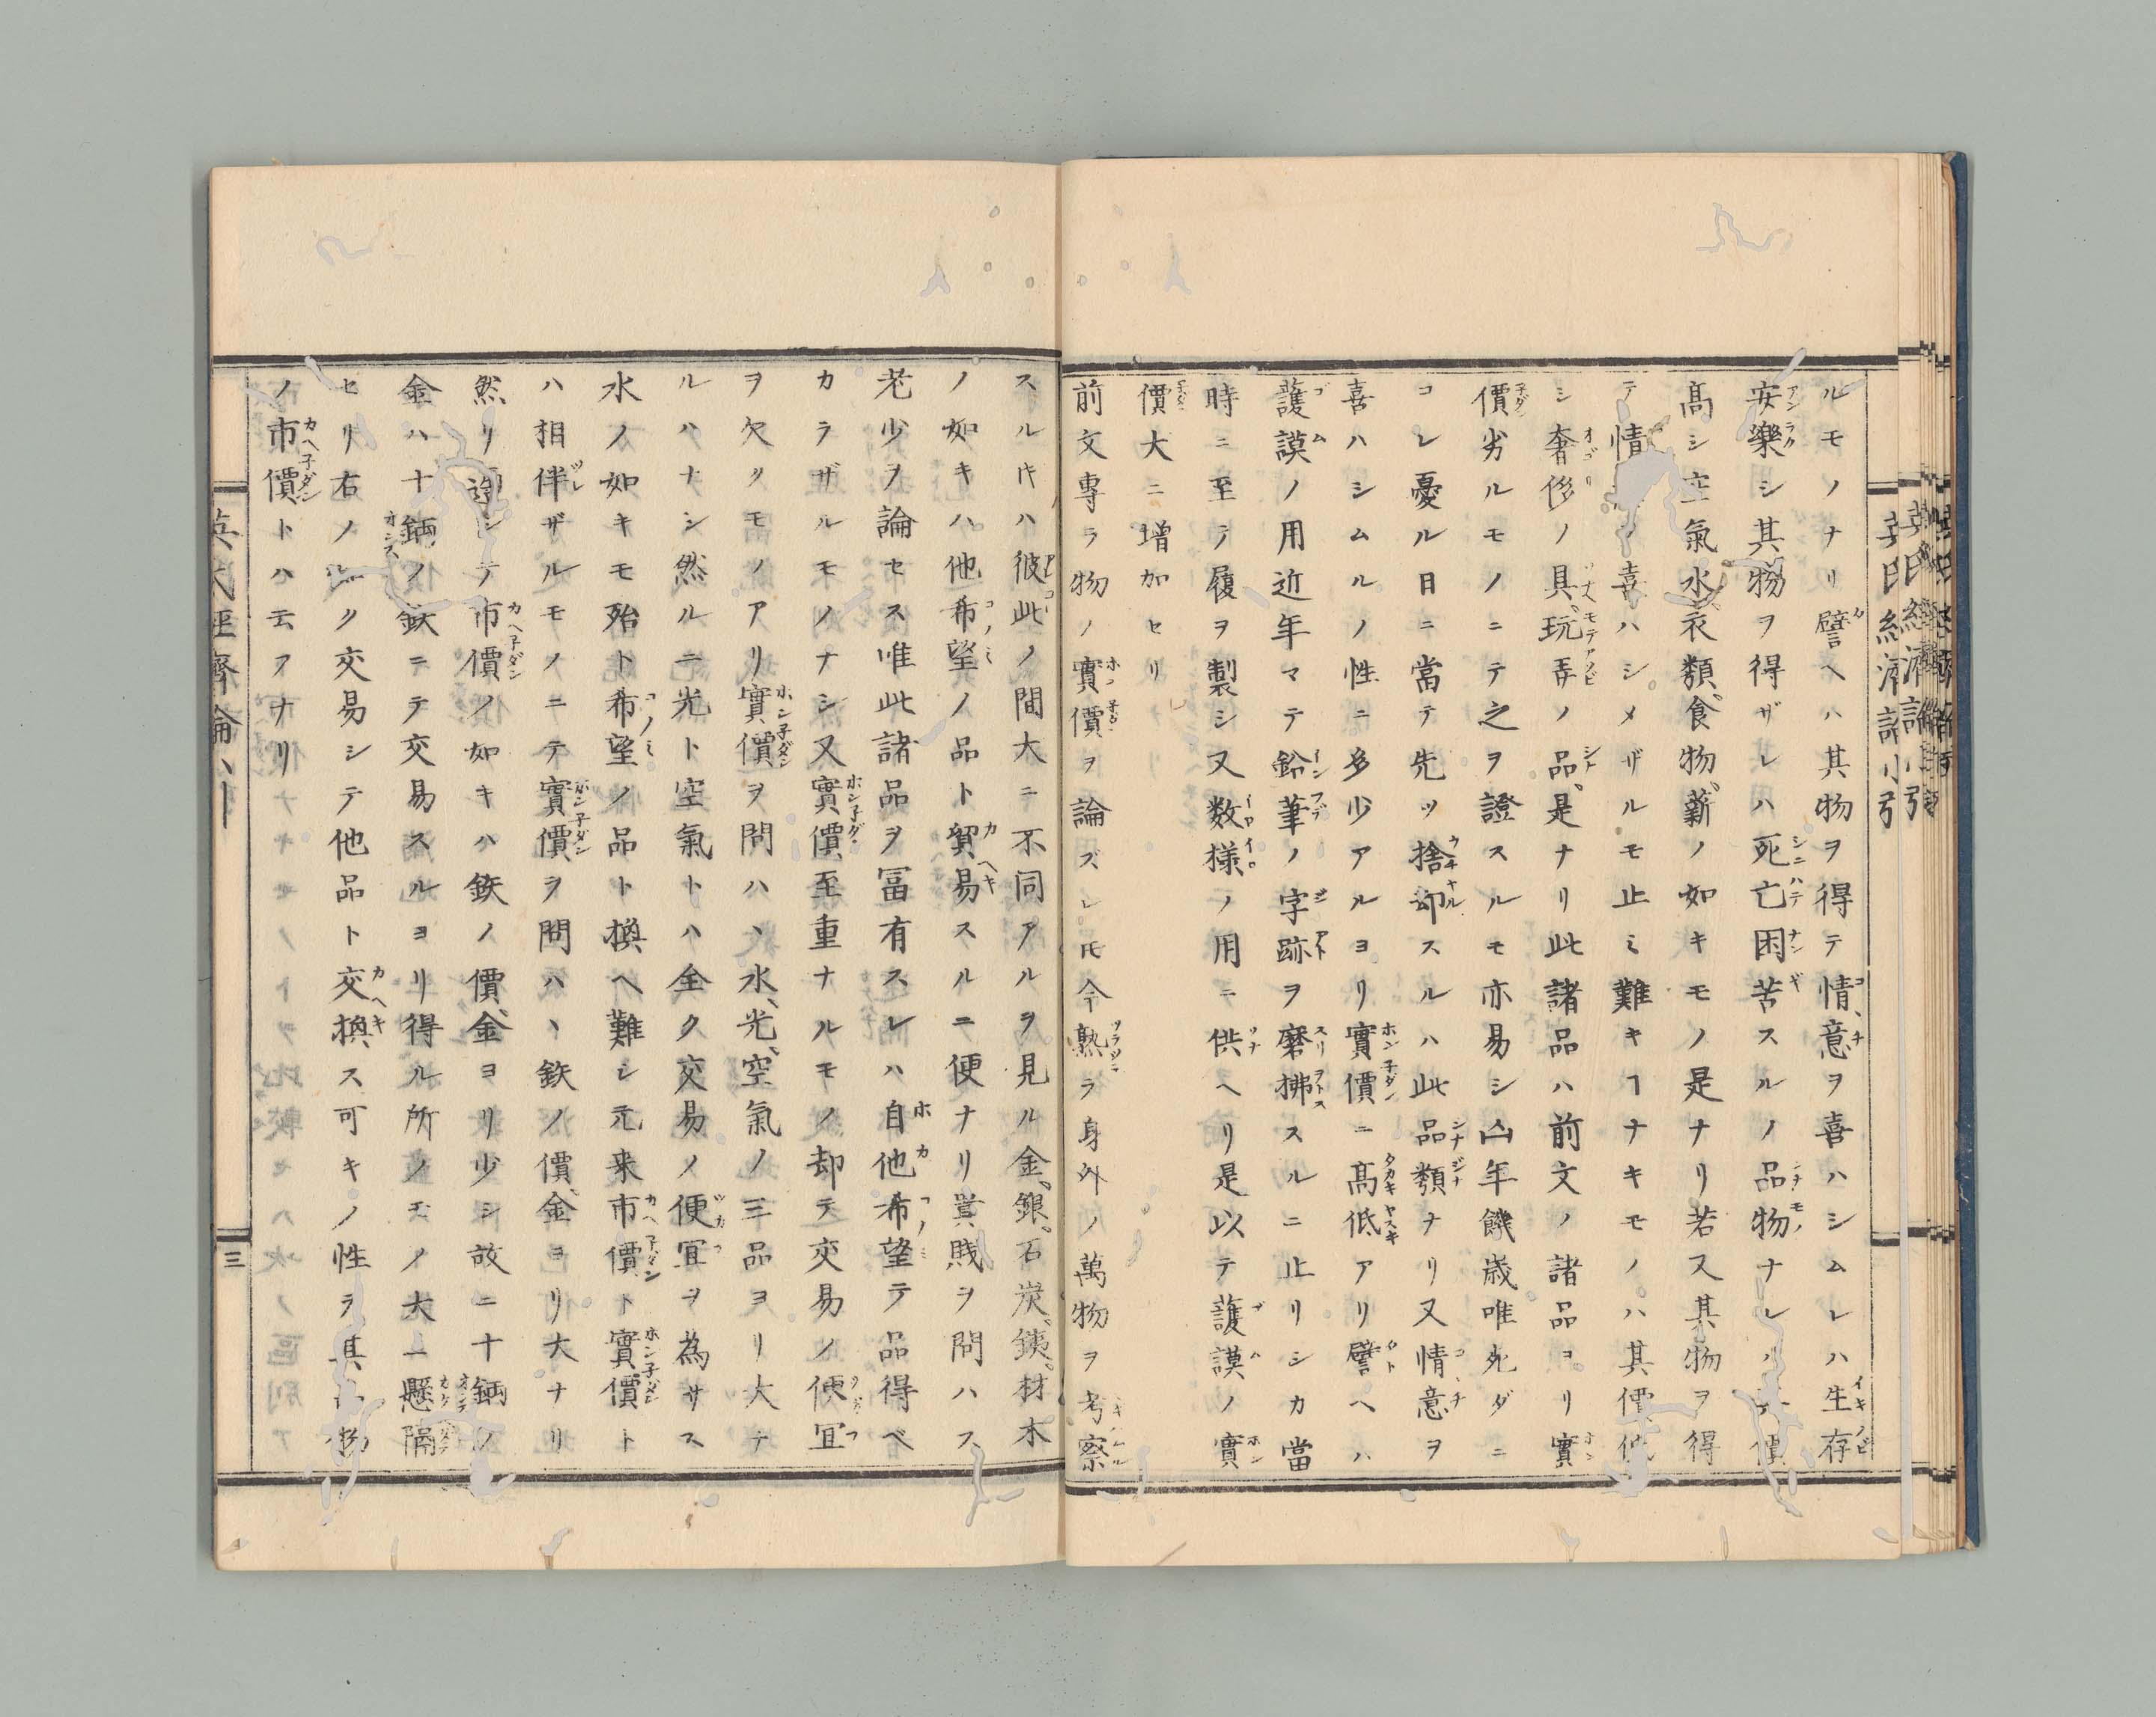 ルモノナリ譬ヘハ其物ヲ得テ情意ヲ喜ハシムレハ生存
安樂シ其物ヲ得ザレハ死亡困苦スルノ品物ナレハ價
高シ空氣水衣類食物薪ノ如キモノ是ナリ若又其物ヲ得
テ情ノ喜ハシメザルモ止ミ難キヿナキモノハ其價低
シ奢侈ノ具玩弄ノ品是ナリ此諸品ハ前文ノ諸品ヨリ實
價劣ルモノニテ之ヲ證スルモ亦易シ凶年饑歳唯死ダニ
コレ憂ル日ニ當テ先ツ捨却スルハ此品類ナリ又情意ヲ
喜ハシムルノ性ニ多少アルヨリ實價ニ高低アリ譬ヘハ
護謨ノ用近年マテ鉛筆ノ字跡ヲ磨拂スルニ止リシカ當
時ニ至テ履ヲ製シ又数様ノ用ニ供ヘリ是以テ護謨ノ實
價大ニ増加セリ
前文專ラ物ノ實價ヲ論ズレ𪜈今熟ラ身外ノ萬物ヲ考察
スルキハ彼此ノ間大ニ不同アルヲ見ル金銀石炭銕材木
ノ如キハ他希望ノ品ト貿易スルニ便ナリ貴賤ヲ問ハス
老少ヲ論セス唯此諸品ヲ冨有スレハ自他希望テ品得ベ
カラザルモノナシ又實價至重ナルモノ却テ交易ノ便宜
ヲ欠クモノアリ實價ヲ問ハヽ水光空氣ノ三品ヨリ大ナ
ルハナシ然ルニ光ト空氣トハ全ク交易ノ便宜ヲ為サス
水ノ如キモ殆ト希望ノ品ト換ヘ難シ元来市價ト實價ト
ハ相伴ザルモノニテ實價ヲ問ハヽ銕ノ價金ヨリ大ナリ
然リ シテ市價ノ如キハ銕ノ價金ヨリ少シ故ニ十鋼ノ
金ハ十鋼ノ銕ニテ交易スルヨリ得ル所ノモノ大ニ懸隔
セリ右ノ如ク交易シテ他品ト交換ス可キノ性ヲ其物
ノ市價トハ云フナリ
三